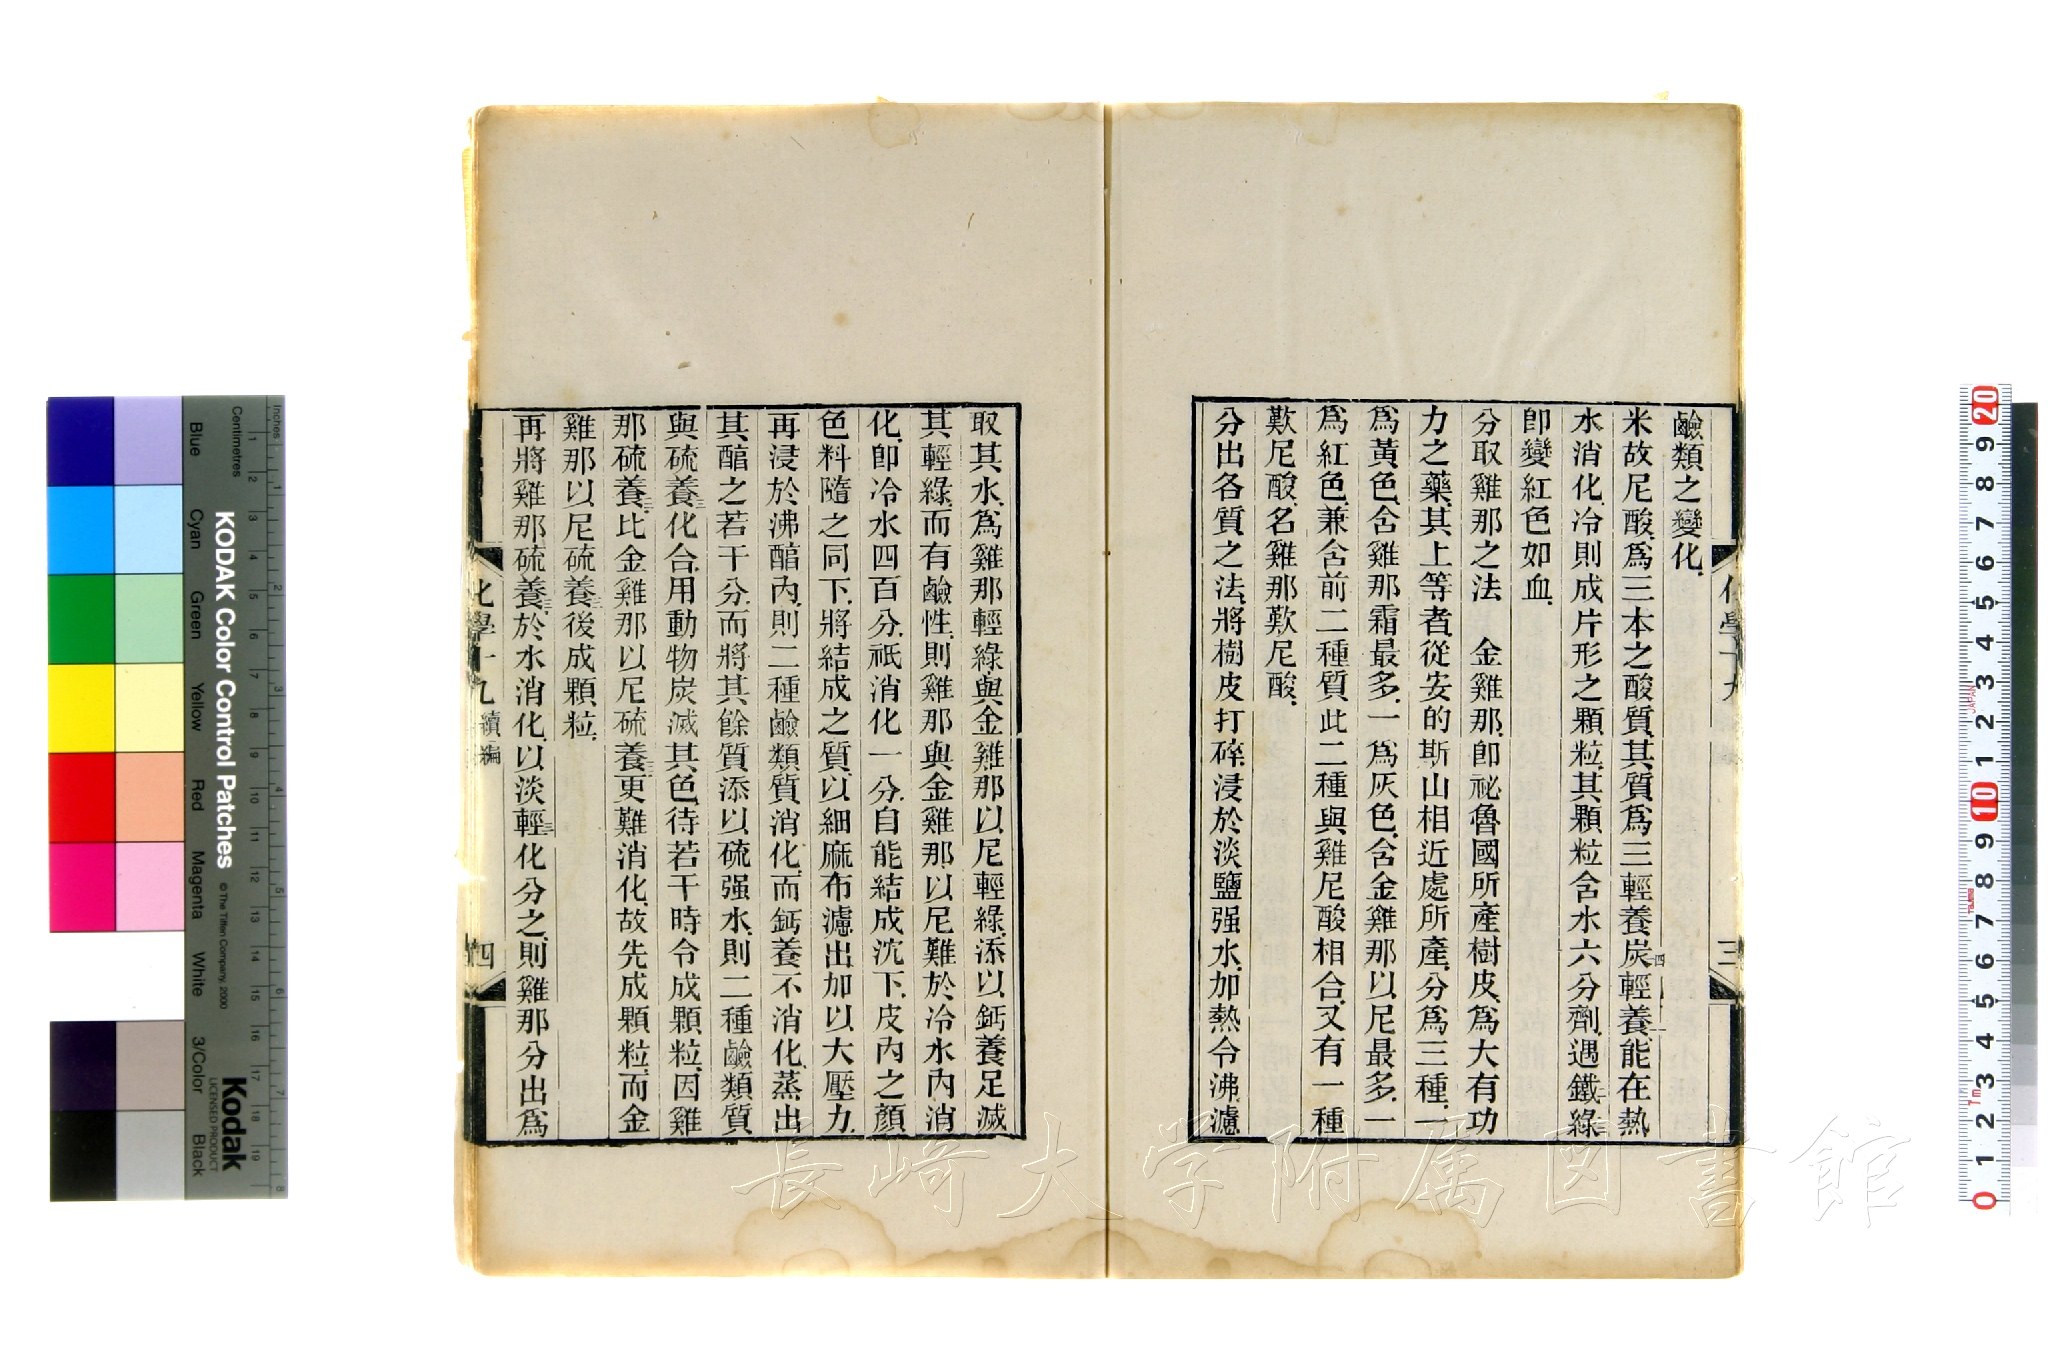 鹼類之變化
米故尼酸為三本之酸質其質為三輕養炭輕養能在熱
水消化冷則成片形之顆粒其顆粒含水六分劑遇鐵綠
卽變紅色如血
分取雞那之法　金雞那卽祕魯國所產樹皮為大有功
力之藥其上等者從安的斯山相近處所產分為三種一
為黃色含雞那霜最多一為灰色含金雞那以尼最多一
為紅色兼含前二種質此二種與雞尼酸相合又有一種
歎尼酸名雞那歎尼酸
分出各質之法將樹皮打碎浸於淡鹽强水加熱令沸濾
三
取其水為雞那輕綠與金雞那以尼輕綠添以鈣養足滅
其輕綠而有鹼性則雞那與金雞那以尼難於冷水內消
化卽冷水四百分祇消化一分自能結成沈下皮內之顏
色料隨之同下將結成之質以細麻布濾出加以大壓力
再浸於沸醕內則二種鹼類質消化而鈣養不消化蒸出
其醕之若干分而將其餘質添以硫强水則二種鹼類質
與硫養三化合用動物炭滅其色待若干時令成顆粒因雞
那硫養三比金雞那以尼硫養三更難消化故先成顆粒而金
雞那以尼硫養三後成顆粒
再將雞那硫養三於水消化以淡輕三化分之則雞那分出為
化學十九 續編
四
KODAK Color Control Patches
© The Tiffen Company, 2000
Kodak
LICENSED PRODUCT
Inches
Centimetres
Blue
Cyan
Green
Yellow
Red
Magenta
White
3/Color
Black
長崎大学附属図書館